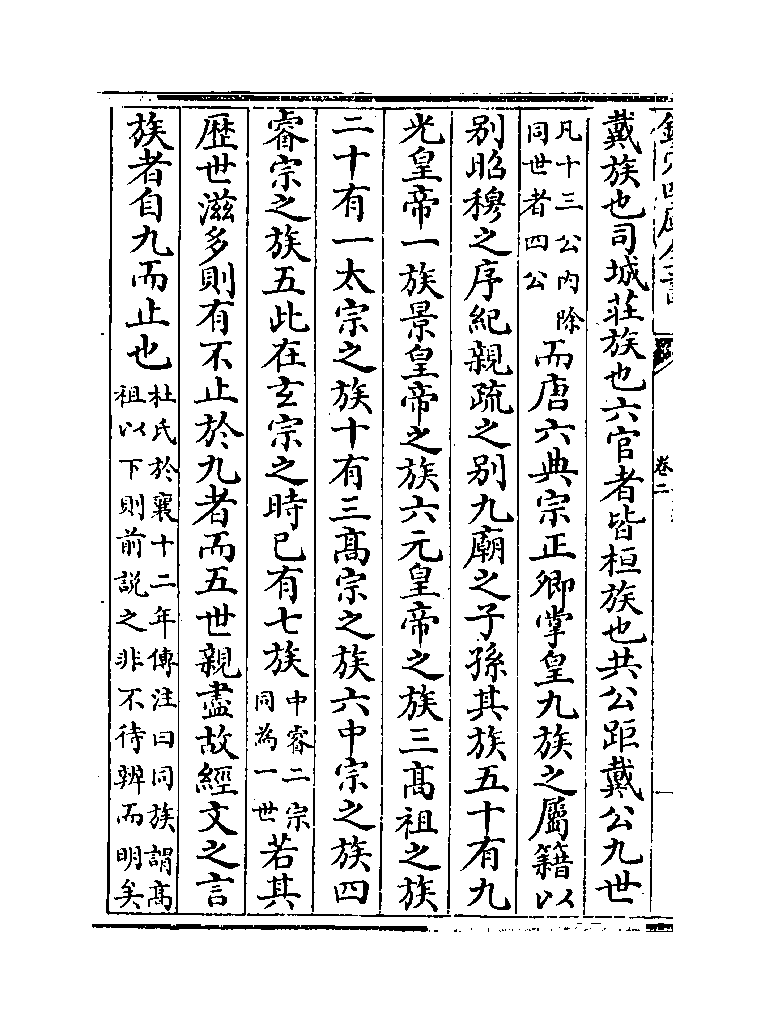 欽定四庫全書
卷二
戴族也司城莊族也六官者皆桓族也共公距戴公九世
凡十三公内除同世者四公而唐六典宗正卿掌皇九族之屬籍以
別昭穆之序紀親疏之別九廟之子孫其族五十有九
光皇帝一族景皇帝之族六元皇帝之族三髙祖之族
二十有一太宗之族十有三髙宗之族六中宗之族四
睿宗之族五此在玄宗之時已有七族中睿二宗同為一世若其
歴世滋多則有不止於九者而五世親盡故經文之言
族者自九而止也杜氏於襄十二年傳注曰同族謂髙祖以下則前說之非不待辨而明矣